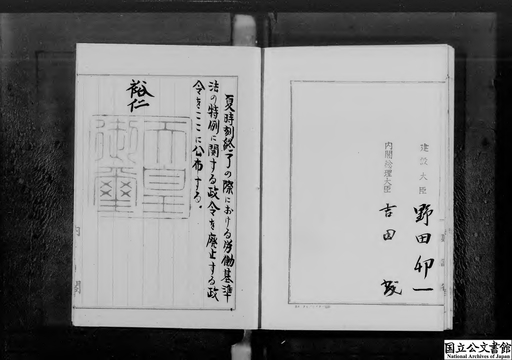 夏時刻終了の際における労働基準
法の特例に関する政令を廃止する政
令をここに公布する。
裕仁
天皇
御璽
建設大臣
野田卯一
内閣総理大臣
吉田茂
国立公文書館
National Archives of Japan